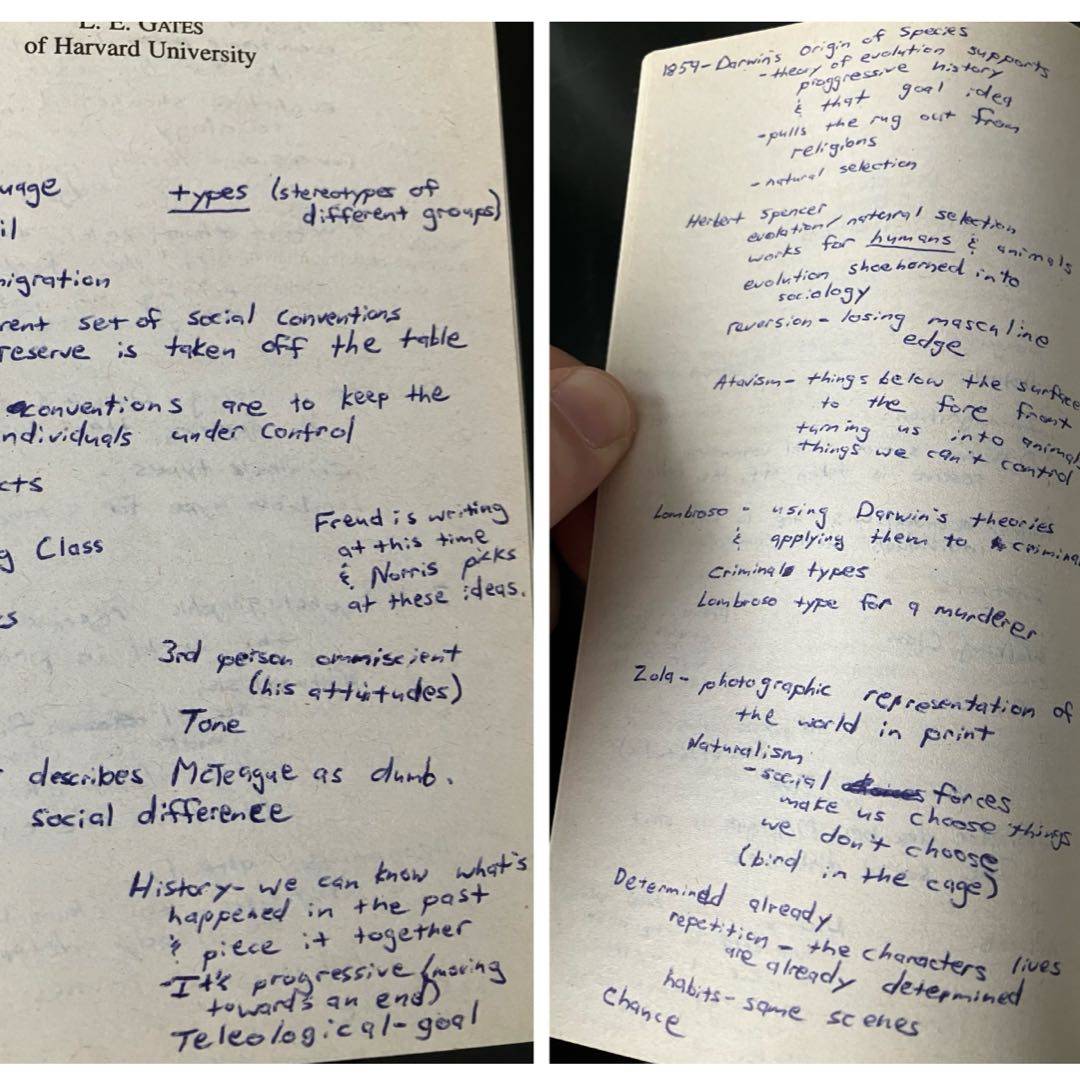 L. E. GATES
of Harvard University
types (stereotypes of
different groups)
set of social conventions
reserve is taken off the table
conventions are to keep the
individuals under control
Class
Freud is writing
at this time
& Norris picks
at these ideas.
3rd person ommiscient
(his attitudes)
Tone
describes McTeague as dumb.
social difference
History- we can know what's
happened in the past
& piece it together
-It's progressive (moving
towards an end)
Teleological-goal
1859- Darwin's Origin of Species
-theory of evolution supports
proggressive history
& that goal idea
-pulls the rug out from
religions
-natural selection
Herbert Spencer
evolation/natural selection
works for humans & animals
evolution shoehorned into
sociology
reversion- losing masculine
edge
Atavism- things below the surface
to the fore front
turning us into animals
things we can't control
Lombroso - using Darwin's theories
& applying them to
Criminal types
Lombroso type for a murderer
Zola- photographic representation of
the world in print
Naturalism
-social forces
make us choose things
we don't choose
(bird in the cage)
Determined already
repetition - the characters lives
are already determined
habits- same scenes
Chance